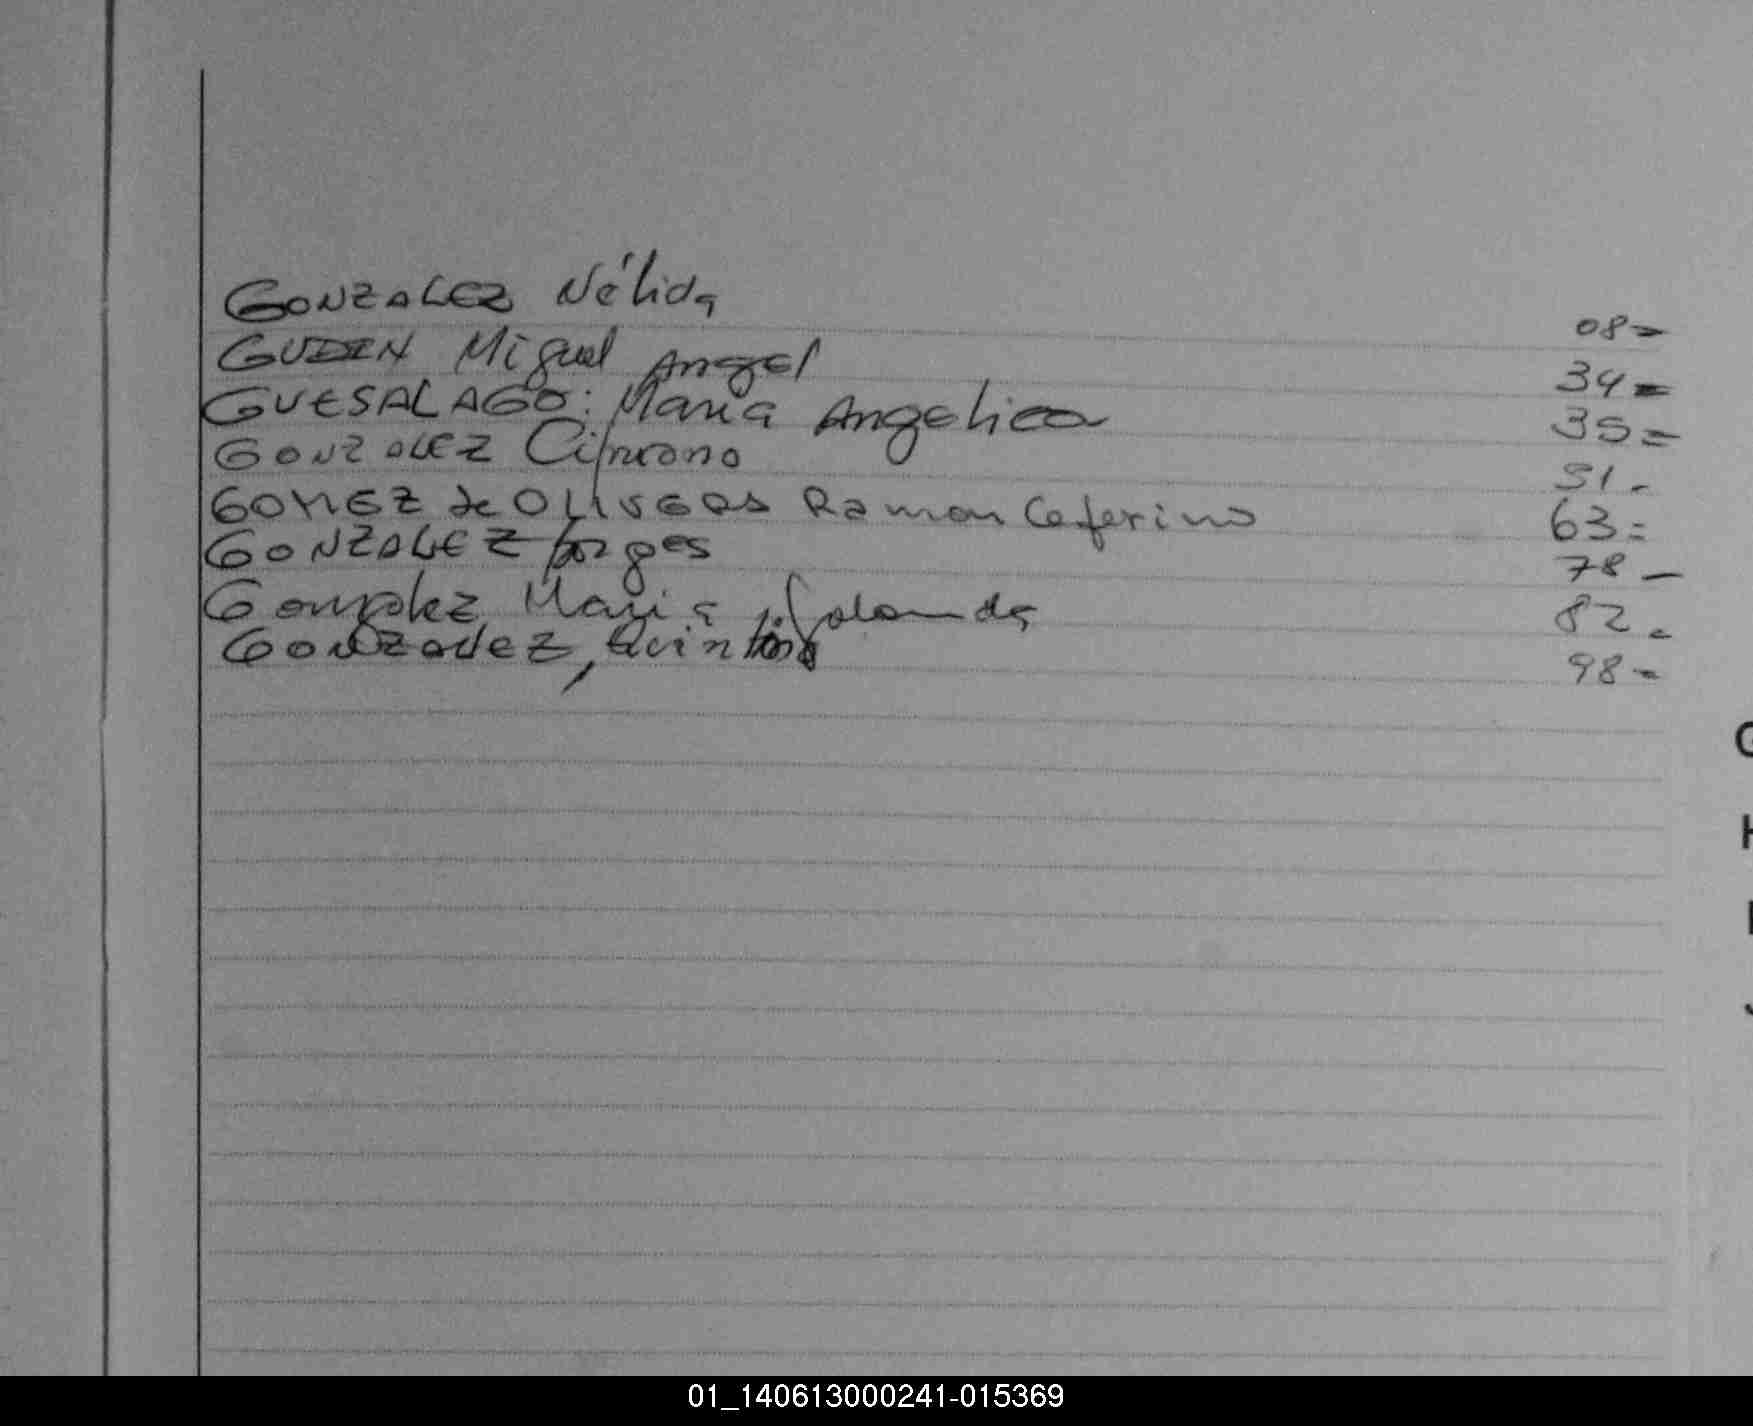 GONZALEZ Nélida 08=
GUDIN Miguel Angel 34=
GUESALAGO: Maria Angelica 35=
GONZALEZ Cipriano 51-
GOMEZ de OLIVEROS Ramon Ceferino 63=
GONZALEZ Borges 78-
Gonzalez Maria Yolanda 82-
Gonzalez, 98-
G
H
I
J
01_140613000241-015369